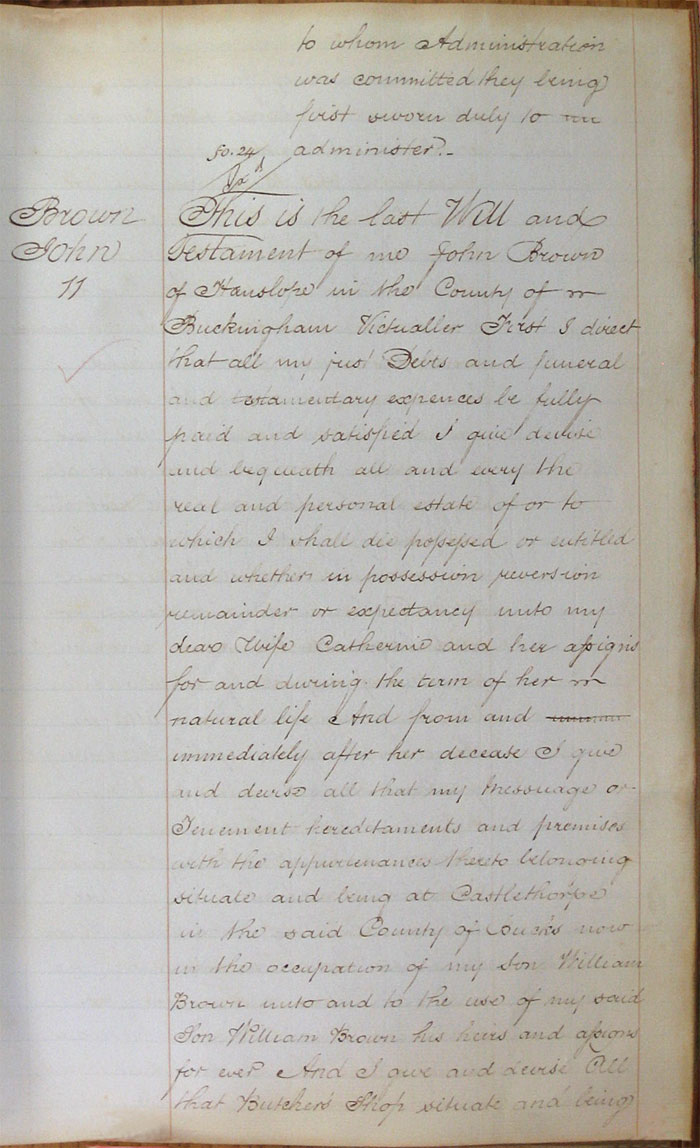 to whom Administration
was committed they being
first sworn duly to
administer.
fo. 24
Brown
John
11
This is the last Will and
Testament of me John Brown
of Hanslope in the County of
Buckingham Victualler First I direct
that all my just Debts and funeral
and testamentary expences be fully
paid and satisfied I give devise
and bequeath all and every the
real and personal estate of or to
which I shall die possessed or entitled
and whether in possession reversion
remainder or expectancy unto my
dear Wife Catherine and her assigns
for and during the term of her
natural life And from and
immediately after her decease I give
and devise all that my Messuage or
Tenement hereditaments and premises
with the appurtenances thereto belonging
situate and being at Castlethorpe
in the said County of Bucks now
in the occupation of my son William
Brown unto and to the use of my said
Son William Brown his heirs and assigns
for ever And I give and devise All
that Butchers Shop situate and being